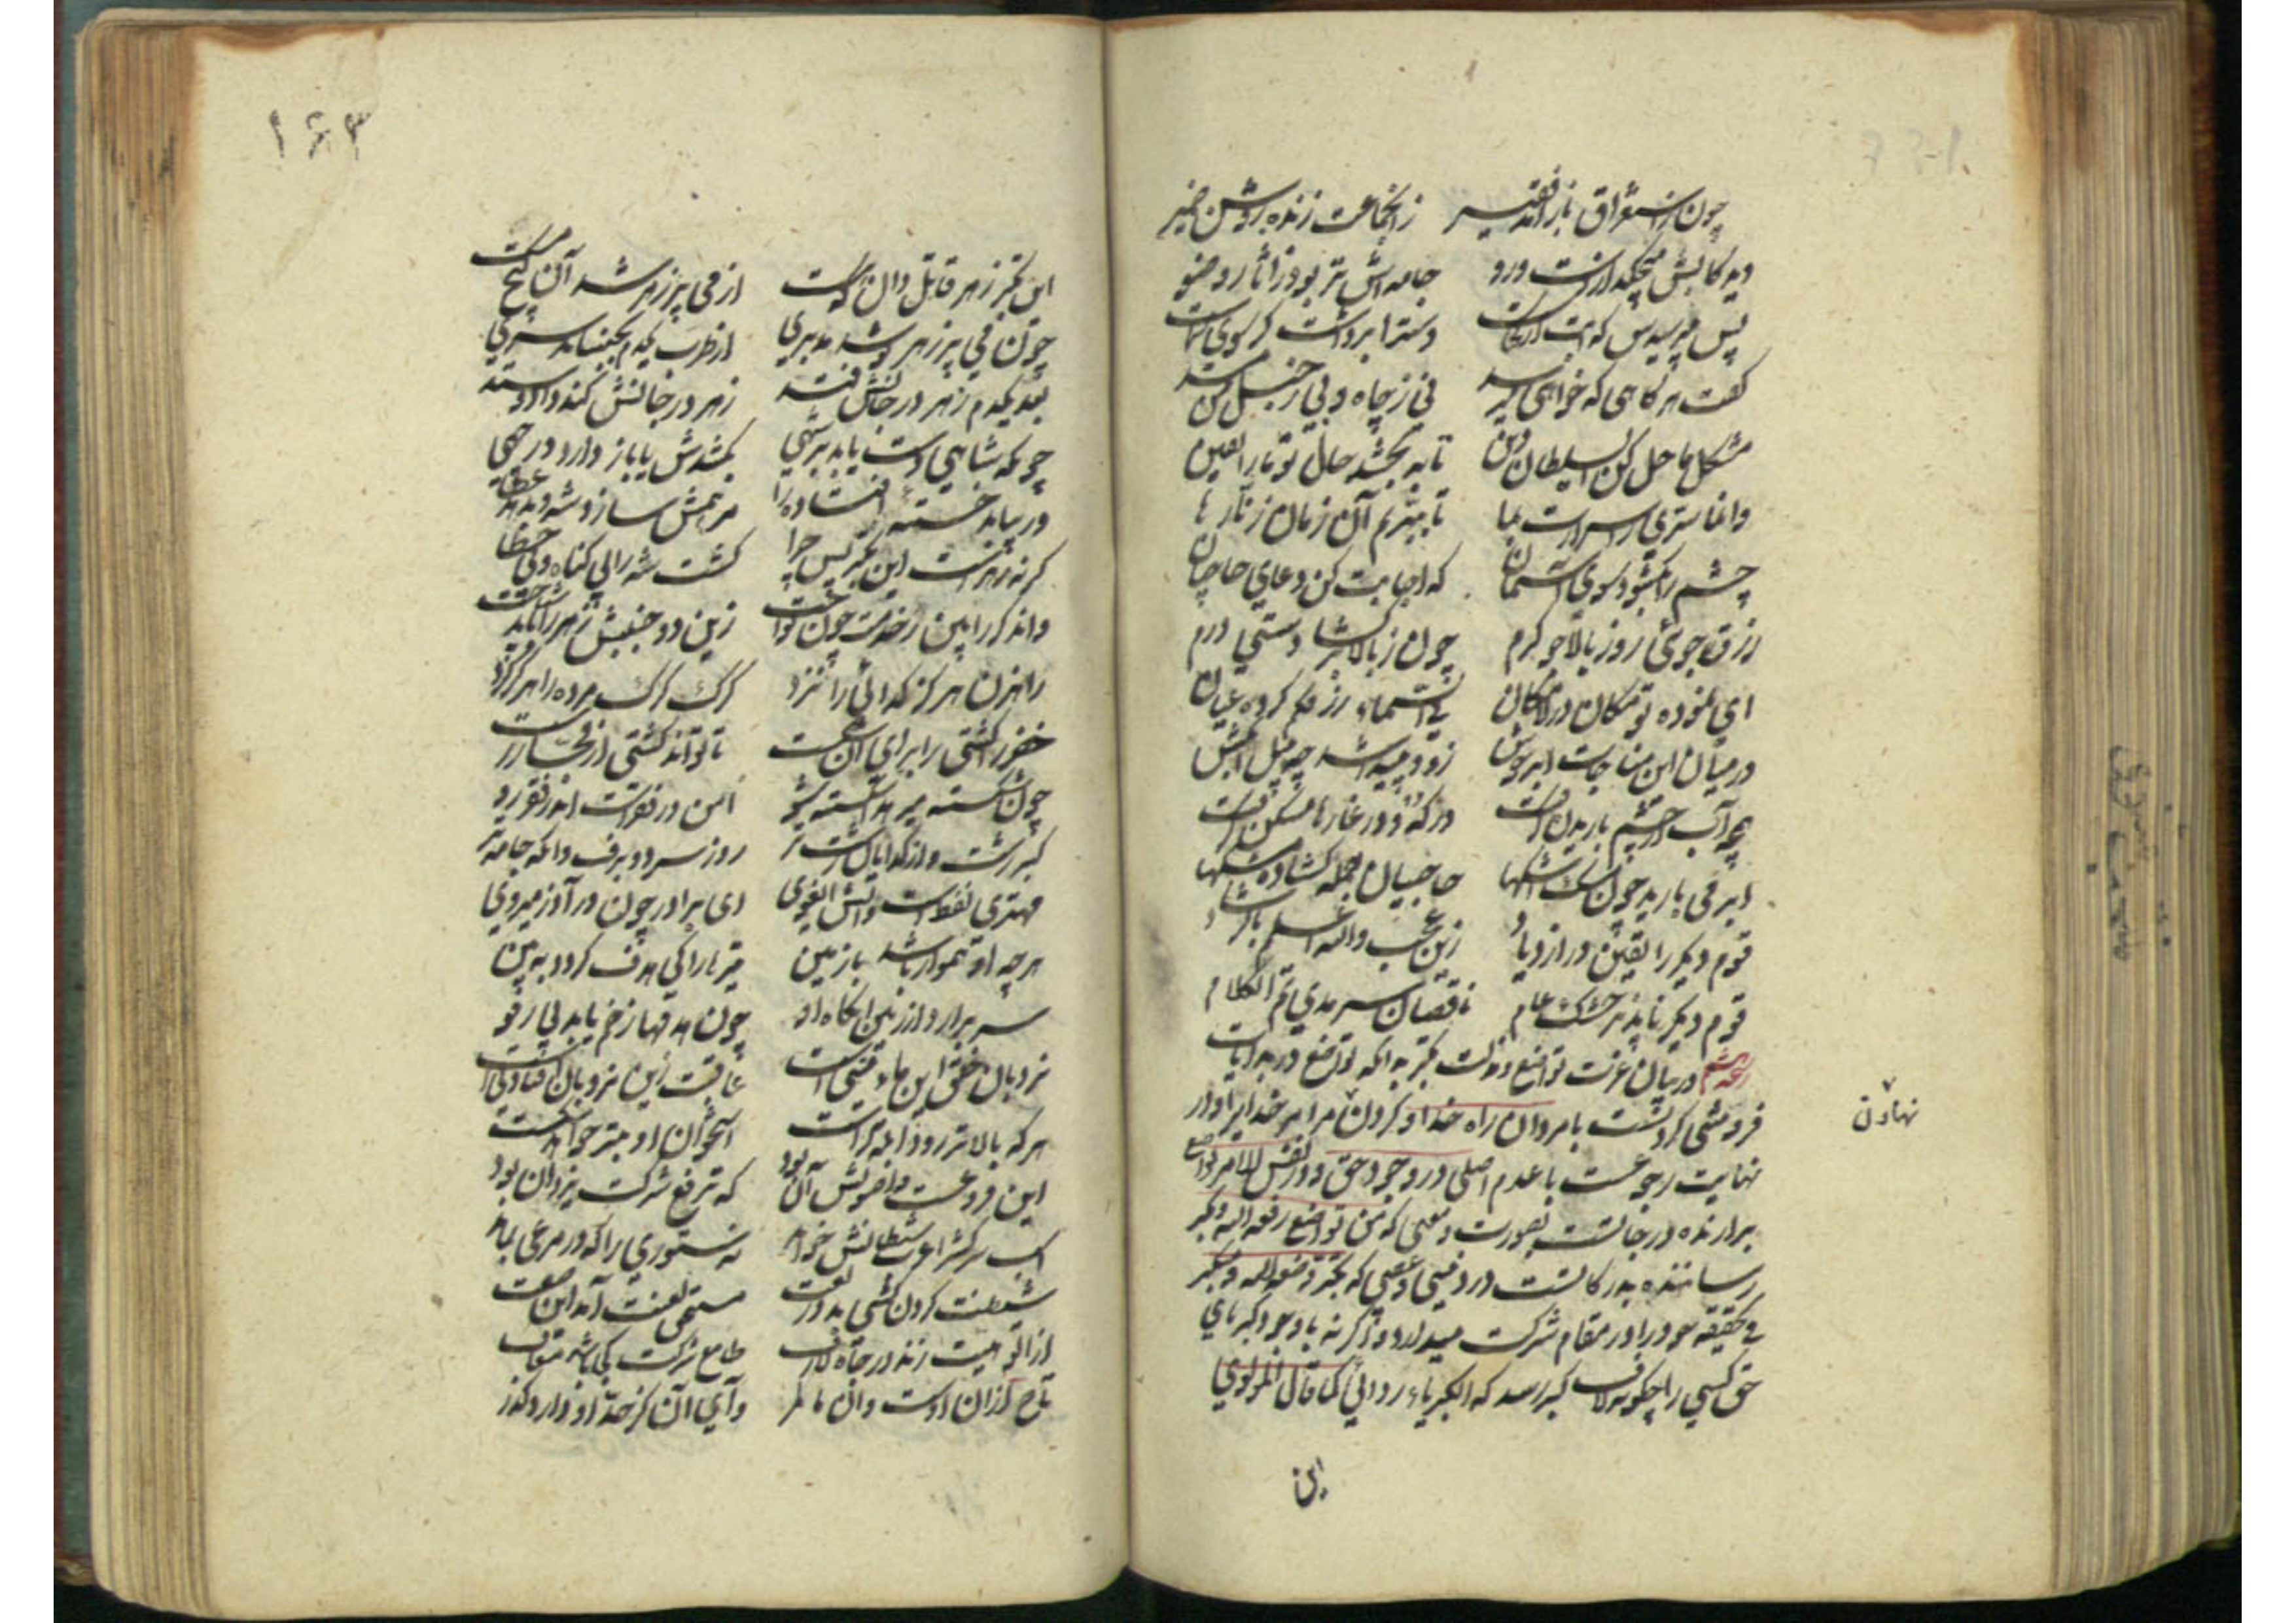 چون ز استغراق باز آمد فقیر زان جماعت زنده روشن ضمیر
دید کابش میچکید از دست و رو جامه‌اش تر بود ز آثار وضو
پس بپرسیدش که آبت از کجاست دست را برداشت کز سوی سماست
گفت هر گاهی که خواهی میرسد نی ز چاه و بی ز حبل من مسد
مشکل ما حل کن ای سلطان دین تا به بخشد حال تو ما را یقین
وانما سری ز اسرارت بما تا ببریم آن زمان زنارها
چشم را بگشود سوی آسمان که اجابت کن دعای حاجیان
رزق جوئی را ز بالا خو کرم چون ز بالا برگشادستی درم
ای نموده تو مکان در لامکان فی السماء رزقکم کرده عیان
در میان این مناجات ابر خوش زود پیدا شد چو پیل آبکش
همچو آب از چشم باریدن گرفت در گو و در غارها مسکن گرفت
ابر می بارید چون مشک اشکها حاجیان جمله گشاده مشکها
قوم دیگر را یقین در ازدیاد زین عجب والله اعلم بالرشاد
قوم دیگر ناپذیرا خشک و خام ناقصان سرمدی تم الکلام
رشحه ششم در بیان عزت تواضع و مذلت تکبر بدانکه تواضع در بدایات
فروتنی کردنست با مردان راه خدا و کردن مر امر خدایرا و در
نهایت رجوعست با عدم اصلی در وجود حق و در نفس الامر تواضع
برارنده درجاتست بصورت و معنی که من تواضع رفعه الله و تکبر
رساننده بدرکاتست در دنیی و عقبی که من تکبر وضعه الله و متکبر
فی حقیقه خود را در مقام شرکت میدارد و اگر نه با وجود کبریای
حق کسی را چگونه لاف کبر رسد که الکبریاء ردائی کما قال المولوی
نهادن
این
۱۶۳
این تکبر زهر قاتل دان که هست از می پر زهر شد آن گیج مست
چون می پر زهر نوشد مدبری از طرب یکدم بجنباند سری
بعد یکدم زهر در جانش فتد زهر در جانش کند داد و ستد
چونکه شاهی دست یابد بر شهی بکشدش یا باز دارد در چهی
ور بیابد خسته افتاده را مرهمش سازد شه و بدهد عطا
گر نه زهر است این تکبر پس چرا کشت شه را بی گناه و بی خطا
واند گر را بین ز خدمت چون نواخت زین دو جنبش زهر را باید شناخت
راهزن هرگز گدائی را نزد گرگ گرگ مرده را هرگز گزد
خضر کشتی را برای آن شکست تا تواند کشتی از فجار رست
چون شکسته میرهد اشکسته شو امن در فقر است اندر فقر رو
کبر زشت و از گدایان زشت‌تر روز سرد و برف وانگه جامه تر
مهتری نفط است و آتش ای غوی ای برادر چون در آذر میروی
هر چه او هموار باشد با زمین تیرها را کی هدف گردد به بین
سر برارد از زمین آنگاه او چون هدفها زخم یابد بی رفو
نردبان خلق این ما و منی است عاقبت زین نردبان افتادنی است
هر که بالاتر رود ابله‌تر است استخوان او بتر خواهد شکست
این فروعست و اصولش آن بود که ترفع شرکت یزدان بود
اسب سرکش را عرب شیطانش خواند نه ستوری را که در مرعی بماند
شیطنت گردن کشی بد در لغت مستحق لعنت آمد این صفت
از الوهیت زند در جاه لاف طامع شرکت کجا باشد معاف
تاج از آن اوست و آن ما کمر وای آن کز حد او دارد گذر